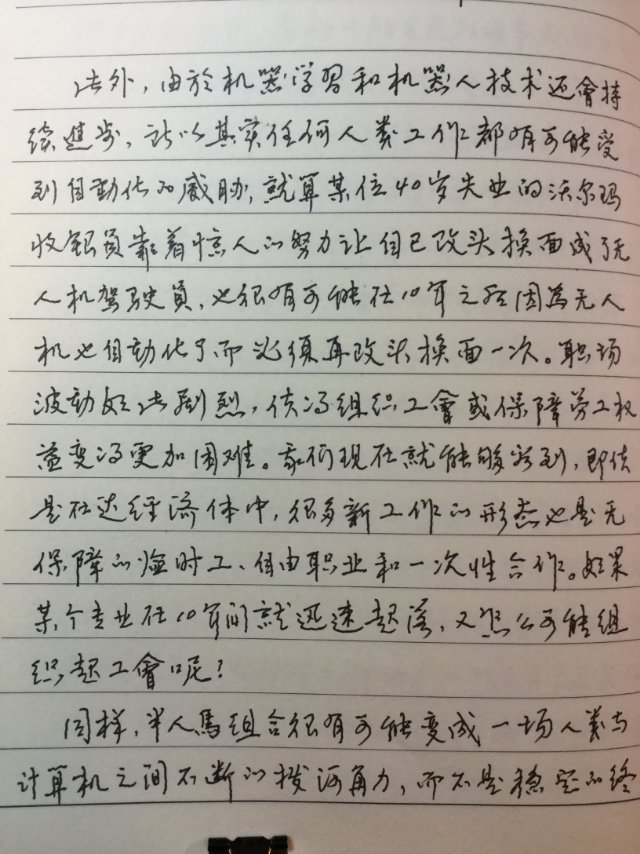 此外，由於机器学習和机器人技术还會持
续進步，所以其实任何人类工作都有可能受
到自動化的威胁，就算某位40岁失业的沃尔玛
收銀員靠着惊人的努力让自己改头换面成了无
人机駕駛員，也很有可能在10年之后因為无人
机也自動化了而必须再改头换面一次。职场
波動如此剧烈，使得组织工會或保障劳工权
益变得更加困难。我们现在就能够看到，即使
是在发达经济体中，很多新工作的形态也是无
保障的临时工、自由职业和一次性合作。如果
某个专业在10年间就迅速起落，又怎么可能组
织起工會呢？
同样，半人馬组合很有可能变成一场人类与
计算机之间不断的拨河角力，而不是稳定的终